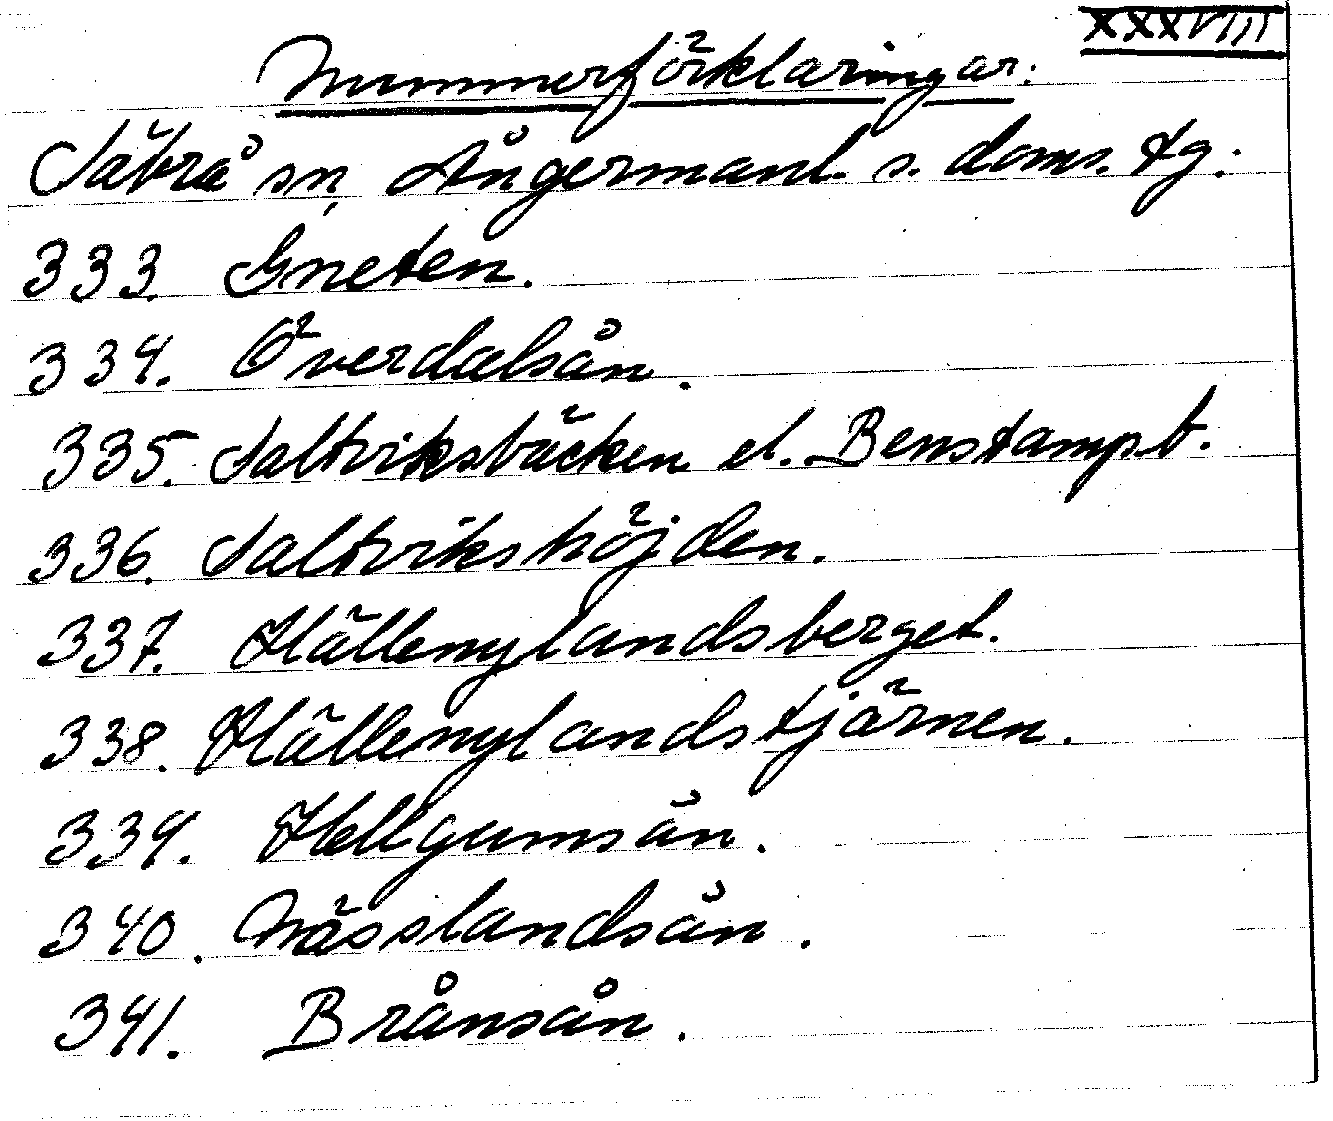 XXXVIII
Nummerförklaringar:
Säbrå sn, Ångermanl. s. doms. tg.
333. Gneten.
334. Överdalsån.
335. Saltviksbäcken el. Benstampb.
336. Saltvikshöjden.
337. Hällenylandsberget.
338. Hällenylandstjärnen.
339. Hellgumsån.
340. Nässlandsån.
341. Brånsån.